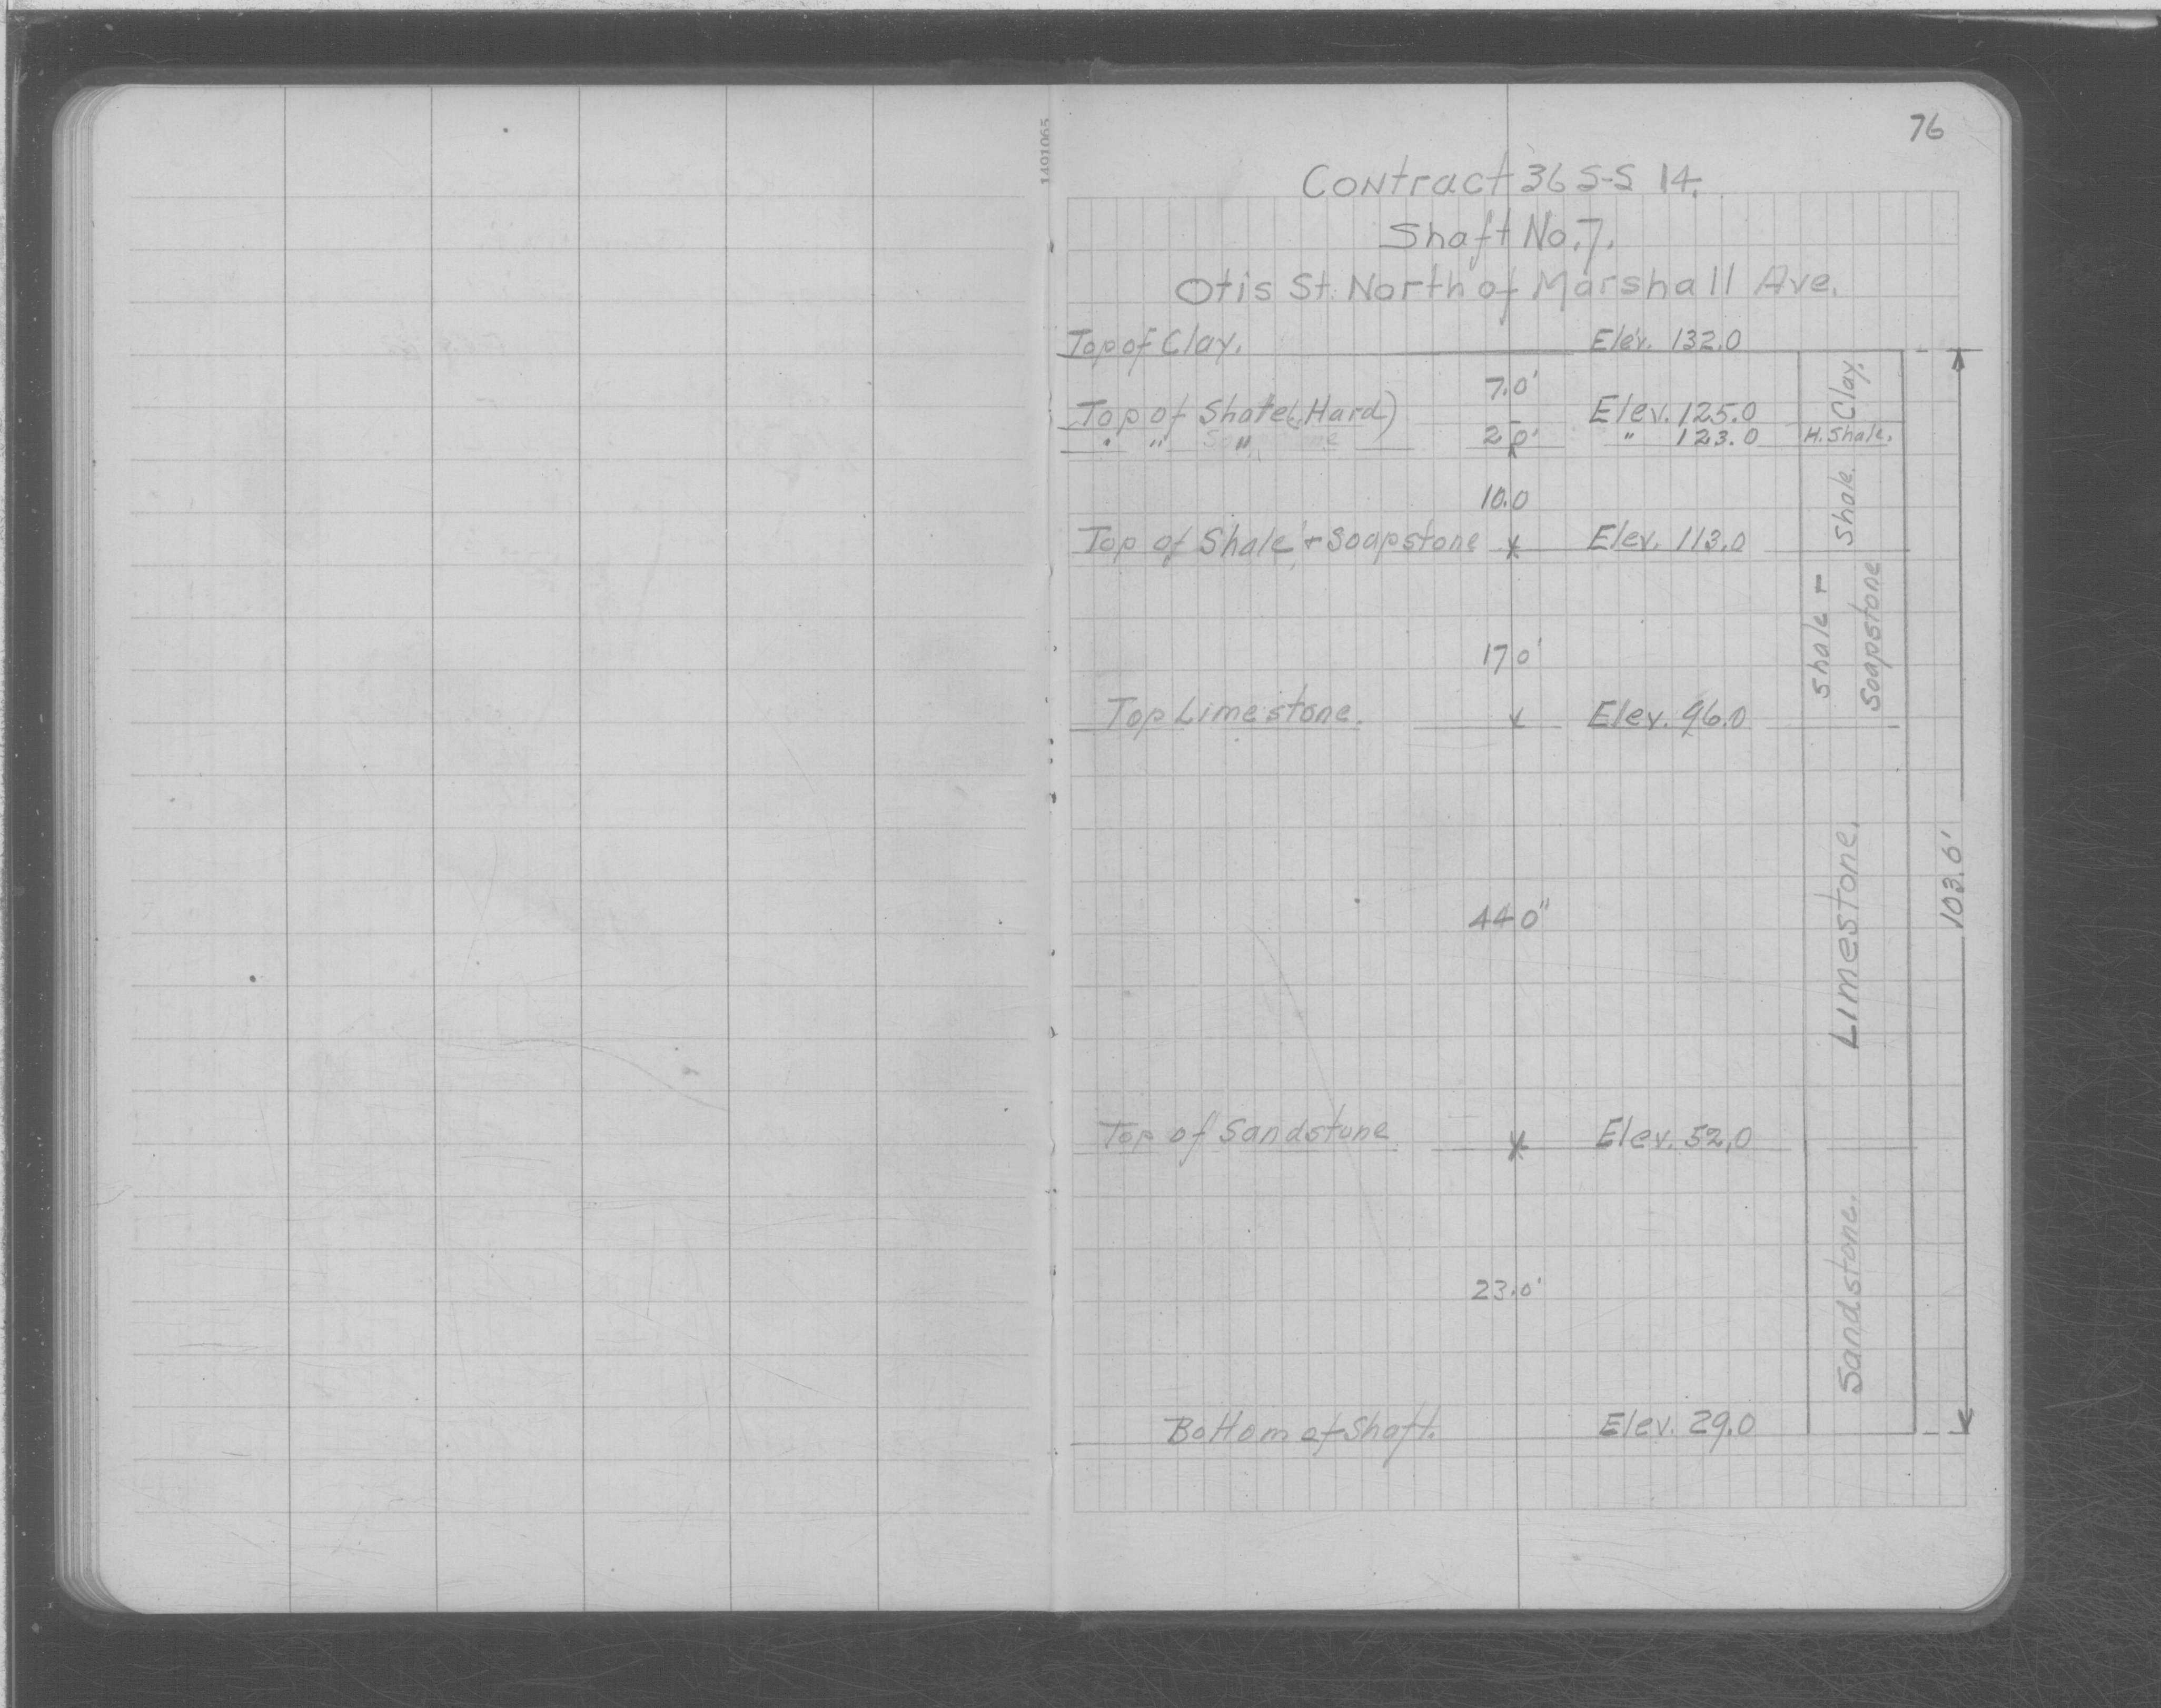 76
1491065
Contract 36 S-S 14.
Shaft No. 7.
Otis St. North of Marshall Ave.
Top of Clay. Elev. 132.0
7.0'
Clay.
Top of Shale (Hard) Elev. 125.0
" " " 2.0' " 123.0 H. Shale.
10.0
Shale.
Top of Shale + Soapstone Elev. 113.0
Shale +
Soapstone
17.0'
Top Limestone. Elev. 96.0
44.0"
Limestone.
103.0'
Top of Sandstone Elev. 52.0
23.0'
Sandstone.
Bottom of Shaft. Elev. 29.0